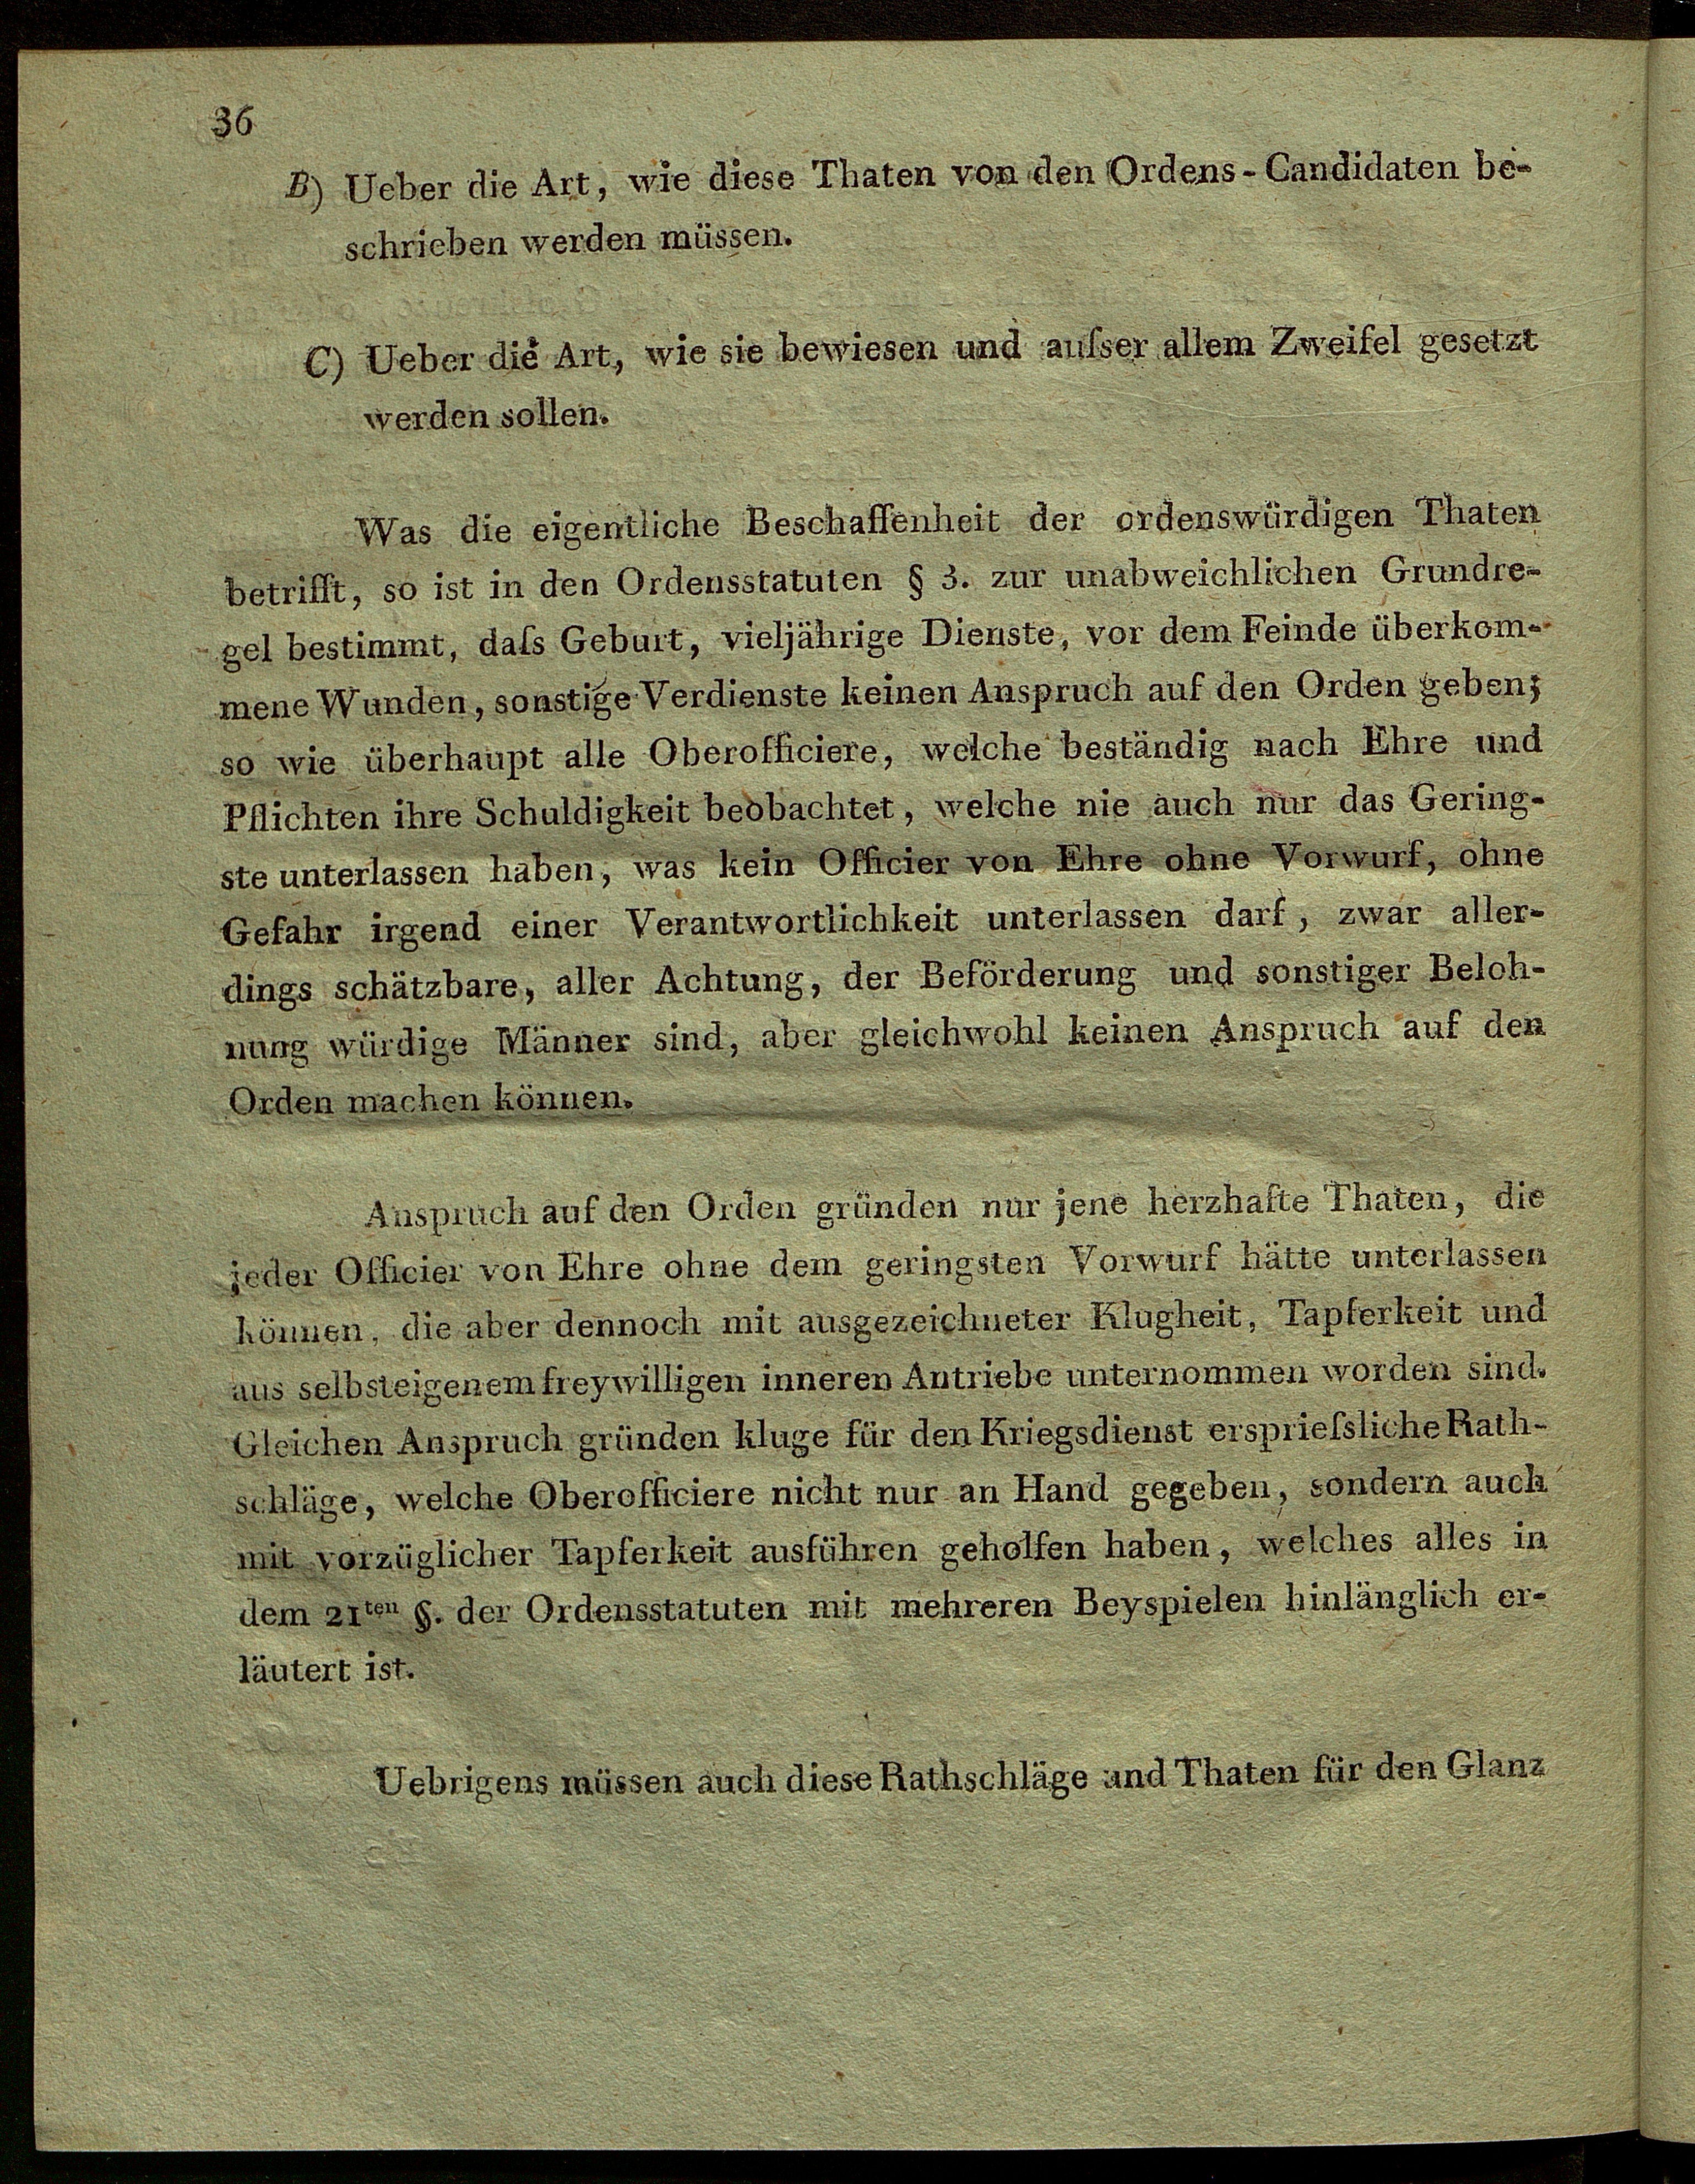 36
B) Ueber die Art, wie diese Thaten von den Ordens-Candidaten be-
schrieben werden müssen.
C) Ueber die Art, wie sie bewiesen und auſser allem Zweifel gesetzt
werden sollen.
Was die eigentliche Beschaffenheit der ordenswürdigen Thaten
betrifft, so ist in den Ordensstatuten § 3. zur unabweichlichen Grundre-
gel bestimmt, daſs Geburt, vieljährige Dienste, vor dem Feinde überkom-
mene Wunden, sonstige Verdienste keinen Anspruch auf den Orden geben;
so wie überhaupt alle Oberofficiere, welche beständig nach Ehre und
Pflichten ihre Schuldigkeit beobachtet, welche nie auch nur das Gering-
ste unterlassen haben, was kein Officier von Ehre ohne Vorwurf, ohne
Gefahr irgend einer Verantwortlichkeit unterlassen darf, zwar aller-
dings schätzbare, aller Achtung, der Beförderung und sonstiger Beloh-
nung würdige Männer sind, aber gleichwohl keinen Anspruch auf den
Orden machen können.
Anspruch auf den Orden gründen nur jene herzhafte Thaten, die
jeder Officier von Ehre ohne dem geringsten Vorwurf hätte unterlassen
können, die aber dennoch mit ausgezeichneter Klugheit, Tapferkeit und
aus selbsteigenem freywilligen inneren Antriebe unternommen worden sind.
Gleichen Anspruch gründen kluge für den Kriegsdienst ersprieſsliche Rath-
schläge, welche Oberofficiere nicht nur an Hand gegeben, sondern auch
mit vorzüglicher Tapferkeit ausführen geholfen haben, welches alles in
dem 21ten §. der Ordensstatuten mit mehreren Beyspielen hinlänglich er-
läutert ist.
Uebrigens müssen auch diese Rathschläge und Thaten für den Glanz